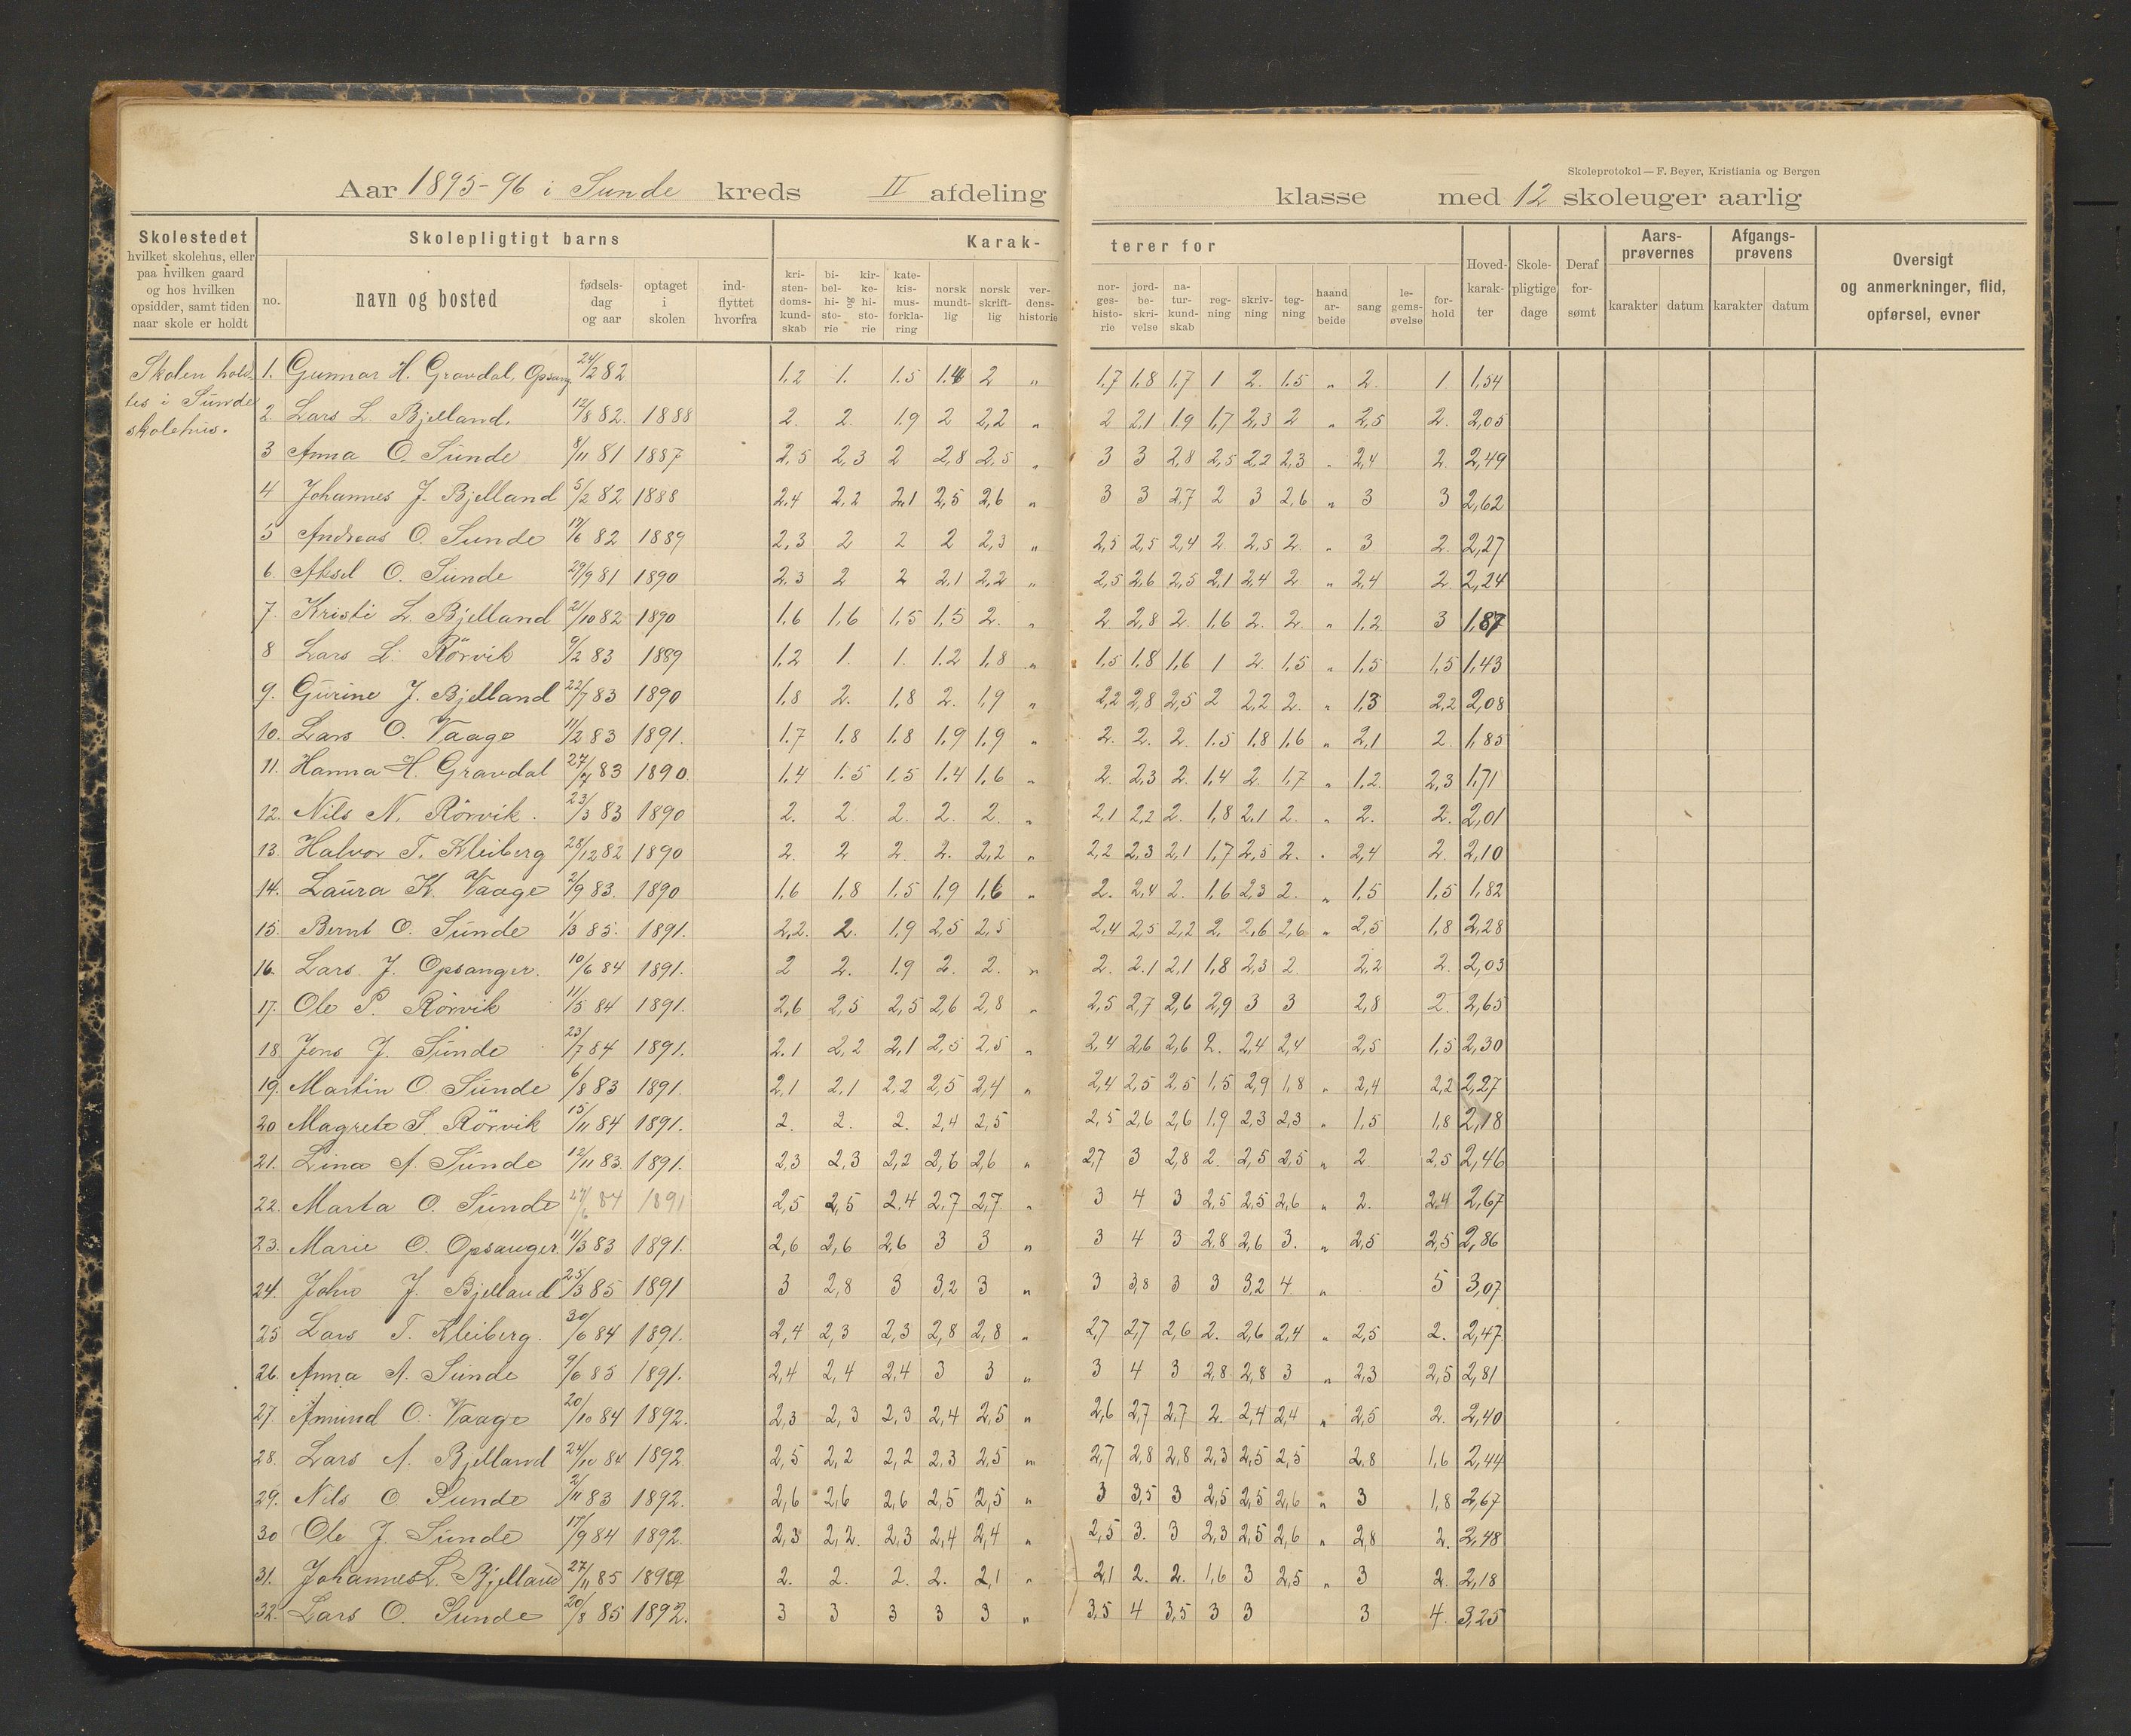 Skoleprotokol — F. Beyer, Kristiania og Bergen
Aar 1895-96 i Sunde kreds II afdeling klasse med 12 skoleuger aarlig
Skolestedet hvilket skolehus, eller paa hvilken gaard og hos hvilken opsidder, samt tiden naar skole er holdt
Skolepligtigt barns
no. navn og bosted fødsels-dag og aar optaget i skolen ind-flyttet hvorfra
Karak-terer for
kri-sten-doms-kund-skab bi-bel-hi-sto-rie og kir-ke-hi-sto-rie kate-kis-mus-forkla-ring norsk mundt-lig norsk skrift-lig ver-dens-historie nor-ges-histo-rie jord-be-skri-velse na-tur-kund-skab reg-ning skriv-ning teg-ning haand ar-beide sang le-gems-øvelse for-hold
Hoved-karak-ter Skole-pligtige dage Deraf for-sømt
Aars-prøvernes karakter datum
Afgangs-prøvens karakter datum
Oversigt og anmerkninger, flid, opførsel, evner
Skolen hold-
tes i Sunde
skolehus.
1. Gunnar H. Gravdal, Opsang 24/2 82 1,2 1. 1.5 1.4 2 „ 1,7 1,8 1,7 1 2. 1.5 „ 2. 1 1,54
2. Lars L. Bjelland. 12/8 82. 1888 2. 2. 1.9 2 2,2 „ 2 2.1 1.9 1,7 2,3 2 „ 2,5 2. 2,05
3 Anna O. Sunde 8/11 81 1887 2,5 2,3 2 2,8 2,5 „ 3 3 2,8 2,5 2,2 2,3 „ 2,4 2. 2,49
4 Johannes J. Bjelland 5/2 82 1888 2,4 2,2 2,1 2,5 2,6 „ 3 3 2,7 2 3 2,6 „ 3 3 2,62
5 Andreas O. Sunde 19/6 82 1889 2,3 2 2 2 2,3 „ 2,5 2,5 2,4 2. 2,5 2. „ 3 2. 2,27
6. Aksel O. Sunde 29/9 81 1890 2,3 2 2 2,1 2,2 „ 2,5 2,6 2,5 2,1 2,4 2 „ 2,4 2. 2,24
7. Kristi L. Bjelland 21/10 82 1890 1,6 1,6 1,5 1,5 2. „ 2. 2,8 2. 1,6 2. 2. „ 1.2 3 1,87
8 Lars L. Rörvik 9/2 83 1889 1,2 1. 1. 1.2 1,8 „ 1,5 1,8 1,6 1 2. 1,5 „ 1,5 1,5 1,43
9. Gurine J. Bjelland 22/7 83 1890 1,8 2. 1,8 2. 1,9 „ 2,2 2,8 2,5 2 2,2 2. „ 1,3 2,2 2,08
10. Lars O. Vaage 11/2 83 1891. 1.7 1.8 1.8 1,9 1,9 „ 2. 2. 2. 1.5 1.8 1,6 „ 2,1 2. 1,85
11. Hanna H. Gravdal 27/4 83 1890. 1,4 1.5 1,5 1.4 1,6 „ 2. 2,3 2. 1,4 2. 1,7 „ 1,2. 2,3 1,71
12. Nils N. Rörvik. 23/3 83 1890 2. 2. 2. 2. 2. „ 2,1 2,2 2. 1,8 2.1 2. „ 2. 2. 2,01
13. Halvor T. Kleiberg 28/12 82 1890 2. 2 2. 2. 2,2 „ 2,2 2,3 2,1 1,7 2,5 2. „ 2,4 2. 2,10
14. Laura K. Vaage 2/9 83. 1890 1.6 1,8 1.5 1,9 1,6 „ 2. 2,4 2. 1.6 2,3 2. „ 1,5 1,5 1,82
15. Bernt O. Sunde 1/3 85. 1891. 2,2. 2. 1,9 2,5 2,5 2,4 2,5 2,2 2. 2,6 2,6 „ 2,5 1.8 2,28
16. Lars J. Opsanger. 10/6 84 1891. 2 2. 1.9 2. 2. „ 2. 2.1 2,1 1,8 2,3 2. 2,2 2. 2,03
17. Ole P. Rörvik 11/5 84 1891. 2,6 2,5 2,5 2,6 2,8 „ 2,5 2,7 2,6 2,9 3 3 2,8 2. 2,65
18. Jens J. Sunde 23/7 84 1891. 2.1 2,2 2,1 2,5 2,5 „ 2,4 2,6 2,6 2. 2,4 2,4 2,5 1.5 2,30
19. Martin O. Sunde 6/8 83 1891. 2,1 2,1 2,2 2,5 2,4 „ 2,4 2,5 2,5 1,5 2,9 1,8 „ 2,4 2,2 2,27
20 Magrete S. Rörvik 15/11 84 1891. 2. 2. 2. 2,4 2,5 2,5 2,6 2,6 1.9 2,3 2,3 „ 1,5 1,8 2,18
21. Lina A. Sunde 12/11 83. 1891. 2,3 2,3 2,2 2,6 2,6 „ 2,7 3 2,8 2. 2,5 2,5 „ 2. 2,5 2,46
22. Marta O. Sunde 27/6 84 1891 2,5 2,5 2,4 2,7 2,7. „ 3 4 3 2,5 2,5 2,6 „ 2. 2,4 2,67
23. Marie O. Opsanger. 11/3 83 1891. 2,6 2,6 2,6 3 3 „ 3 4 3 2,8 2,6 3. „ 2,5 2,5 2,86
24. John J. Bjelland 25/3 85 1891 3 2,8 3 3,2 3 „ 3 3,8 3 3 3,2 4 „ 5 3,07
25 Lars T. Kleiberg. 30/6 84 1891. 2,4 2,3 2,3 2,8 2,8 „ 2,7 2,7 2,6 2. 2,6 2,4 „ 2,5 2. 2,47
26. Anna A. Sunde 9/6 85 1891. 2,4 2,4 2,4 3 3 „ 3 4 3 2,8 2,8 3 „ 2,3 2,5 2,81
27. Amund O. Vaage 20/10 84 1892. 2,3 2,3 2,3 2,4 2,5 „ 2,6 2,7 2,7 2. 2,4 2,4 „ 2,5 2. 2,40
28. Lars A. Bjelland 24/10 84 1892. 2,5 2,2 2,2 2,3 2,5 „ 2,7 2,8 2,8 2,3 2,5 2,5 2,8 1,6 2,44
29. Nils O. Sunde 2/11 83 1892. 2,6 2,6 2,6 2,5 2,5 „ 3 3,5 3 2,5 2,5 2,6 „ 3 1,8 2,67
30 Ole J. Sunde 17/9 84 1892. 2,3 2,2. 2,3 2,4 2,4 „ 2,5 3. 3 2,3 2,5 2,6 „ 2,8 2. 2,48
31. Johannes L. Bjelland 27/11 85 1892 2. 2. 2. 2. 2,1 „ 2,1 2. 2. 1,6 3 2,5 „ 3 2. 2,18
32. Lars O. Sunde 20/8 85 1892. 3 3 3 3 3 „ 3,5 4 3,5 3 3 3 4. 3,25